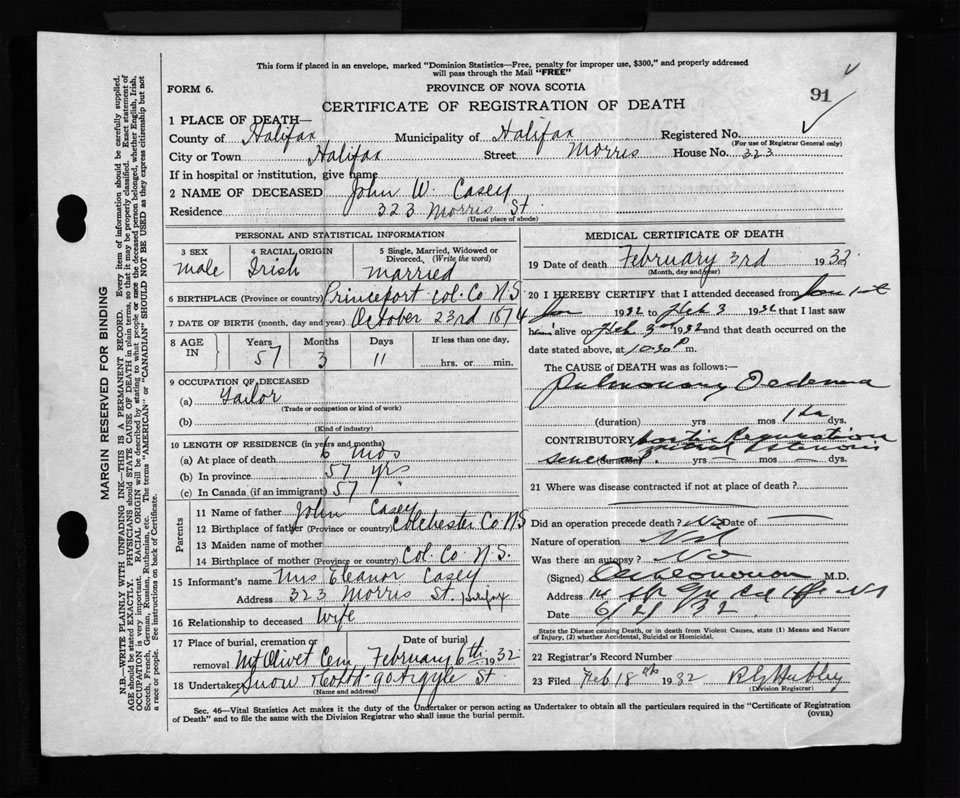 This form if placed in an envelope, marked "Dominion Statistics—Free, penalty for improper use, $300," and properly addressed
will pass through the Mail "FREE"
FORM 6.
PROVINCE OF NOVA SCOTIA
91
CERTIFICATE OF REGISTRATION OF DEATH
1 PLACE OF DEATH—
County of Halifax Municipality of Halifax Registered No.
(For use of Registrar General only)
City or Town Halifax Street Morris House No. 323
If in hospital or institution, give name
2 NAME OF DECEASED John W. Casey
Residence 323 Morris St.
(Usual place of abode)
PERSONAL AND STATISTICAL INFORMATION
3 SEX 4 RACIAL ORIGIN 5 Single, Married, Widowed or
Divorced. (Write the word)
male Irish married
6 BIRTHPLACE (Province or country) Princeport Col. Co N.S
7 DATE OF BIRTH (month, day and year) October 23rd 1874
8 AGE IN Years Months Days If less than one day,
57 3 11 hrs. or min.
9 OCCUPATION OF DECEASED
(a) Tailor
(Trade or occupation or kind of work)
(b)
(Kind of industry)
10 LENGTH OF RESIDENCE (in years and months)
(a) At place of death 6 mos
(b) In province 57 yrs
(c) In Canada (if an immigrant) 57 "
Parents
11 Name of father John Casey
12 Birthplace of father (Province or country) Colchester Co NS
13 Maiden name of mother
14 Birthplace of mother (Province or country) Col. Co N.S.
15 Informant's name Mrs Eleanor Casey
Address 323 Morris St Halifax
16 Relationship to deceased wife
17 Place of burial, cremation or Date of burial
removal Mt Olivet Cem February 6th 1932
18 Undertaker Snow & Co Ltd - 90 Argyle St
(Name and address)
MEDICAL CERTIFICATE OF DEATH
19 Date of death February 3rd 1932
(Month, day and year)
20 I HEREBY CERTIFY that I attended deceased from
1932 to Feb 3 1932 that I last saw
him alive on Feb 3rd 1932 and that death occurred on
date stated above, at 10.30 P m.
The CAUSE OF DEATH was as follows:—
Pulmonary Oedema
(duration) yrs mos 1 da dys.
CONTRIBUTORY Aortic Regurgitation
yrs — mos — dys.
21 Where was disease contracted if not at place of death?
Did an operation precede death? No Date of —
Nature of operation Nil
Was there an autopsy? No
(Signed) M.D.
Address
Date 6/2/32
State the Disease causing Death, or in death from Violent Causes, state (1) Means and Nature
of Injury, (2) whether Accidental, Suicidal or Homicidal.
22 Registrar's Record Number
23 Filed Feb 18th 1932 R G Hubley
(Division Registrar)
Sec. 46—Vital Statistics Act makes it the duty of the Undertaker or person acting as Undertaker to obtain all the particulars required in the "Certificate of Registration
of Death" and to file the same with the Division Registrar who shall issue the burial permit.
(OVER)
MARGIN RESERVED FOR BINDING
N.B.—WRITE PLAINLY WITH UNFADING INK—THIS IS A PERMANENT RECORD. Every item of information should be carefully supplied.
AGE should be stated EXACTLY. PHYSICIANS should STATE CAUSE OF DEATH in plain terms, so that it may be properly classified. Exact statement of
OCCUPATION is very important. RACIAL ORIGIN will be described by stating to what people or race the deceased person belonged, whether English, Irish,
Scotch, French, German, Russian, Ruthenian, etc. The terms "AMERICAN" or "CANADIAN" SHOULD NOT BE USED as they express citizenship but not
a race or people. See instructions on back of Certificate.